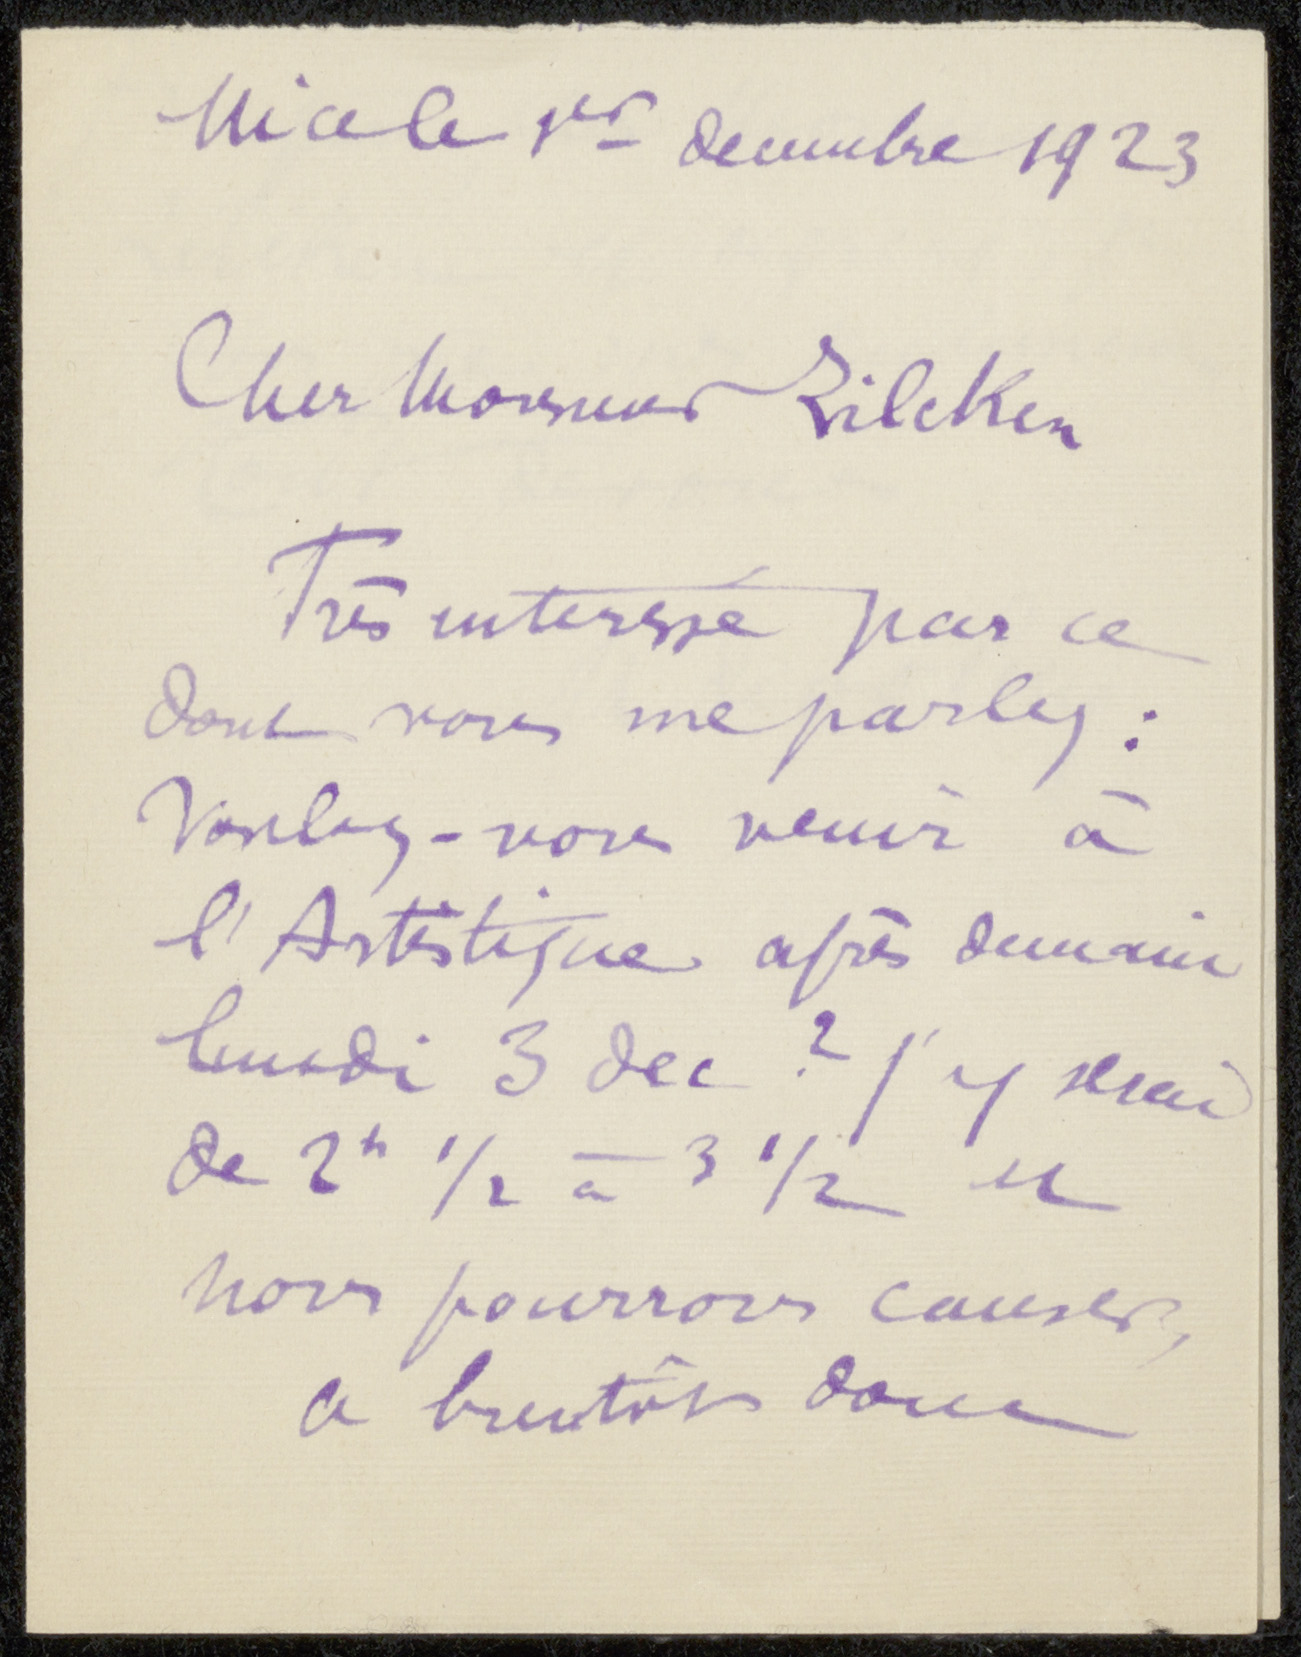 Nice le 1er decembre 1923
Cher Monsieur Zilcken
Très interessé par ce
dont vous me parlez :
Voulez-vous venir à
l'Artistique après demain
lundi 3 dec ? j'y serai
de 2h 1/2 à 3 1/2 et
nous pourrons causer,
a bientôt donc